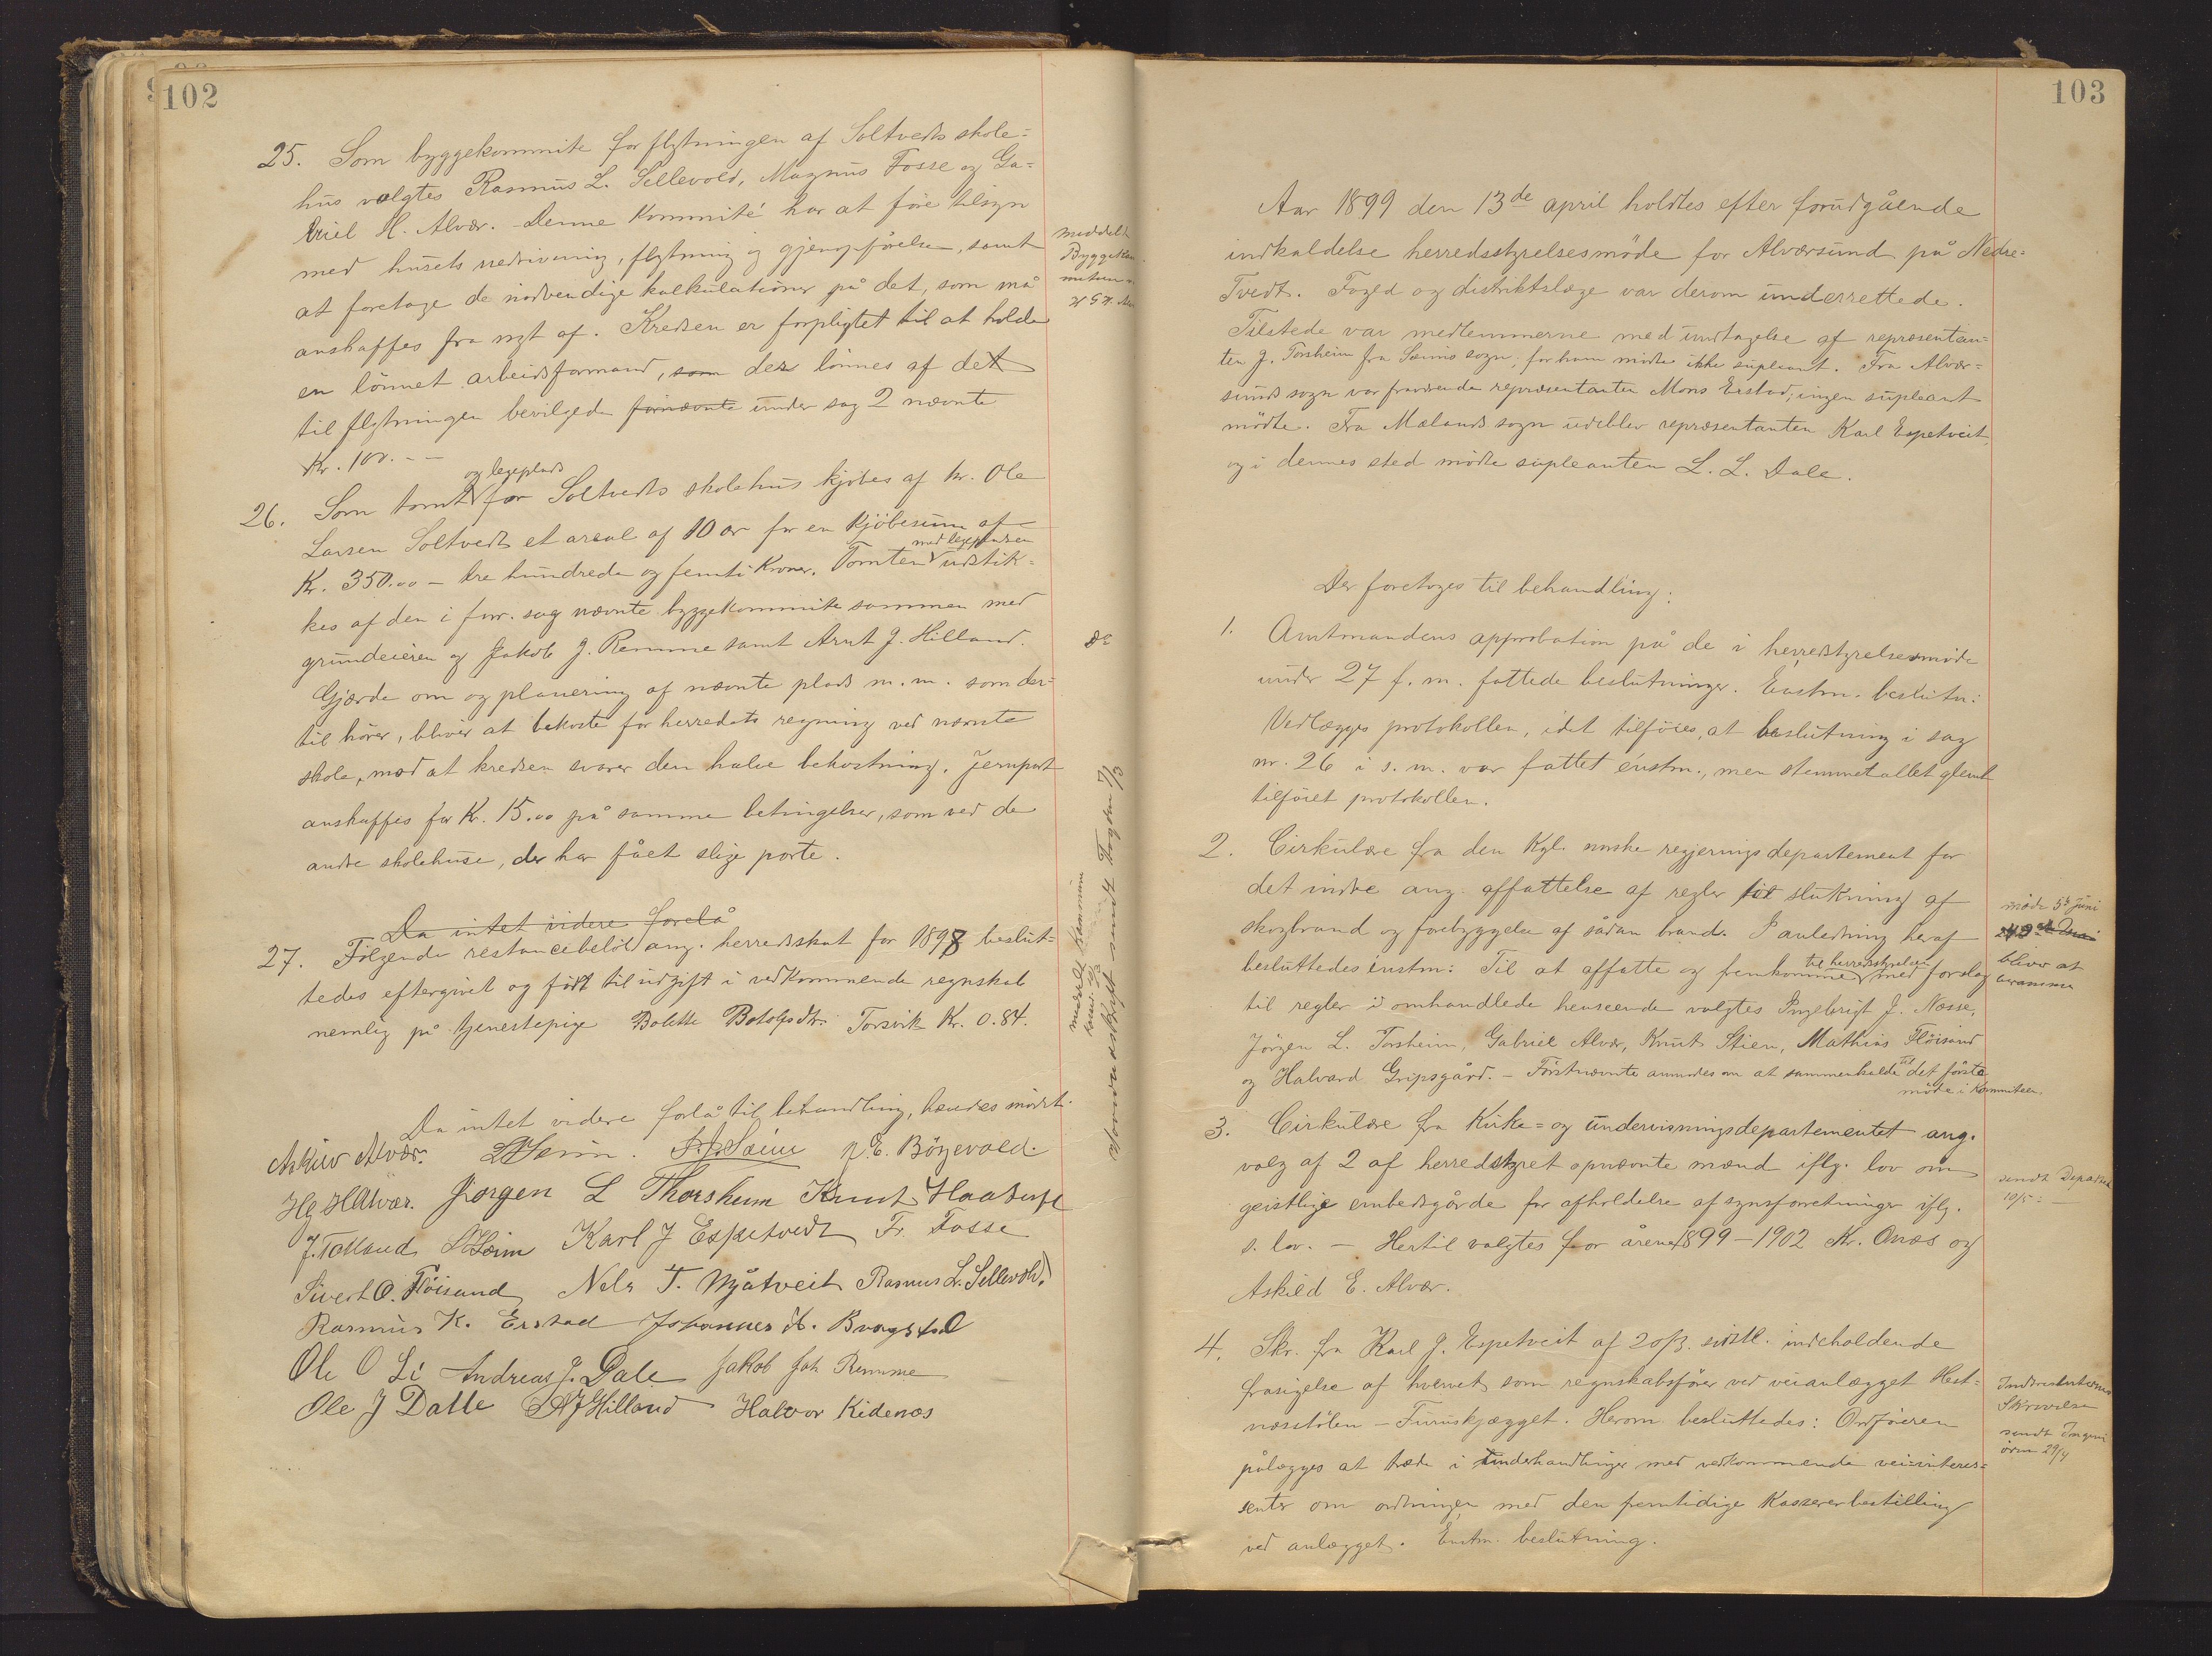 102
25. Som byggekommite for flytningen af Soltveds skole=
hus valgtes Rasmus L. Sellevold, Magnus Fosse og Ga=
briel H. Alvær. - Denne kommité har at føre tilsyn
med husets nedrivning, flytning og gjenopførelse, samt
at foretage de nødvendige kalkulationer på det, som må
anskaffes fra nyt af. Kredsen er forpligtet til at holde
en lönnet arbeidsformand, som der lönnes af det
til flytningen bevilgede fornævnte under sag 2 nævnte
Kr. 100. - -
meddelt
26. Som tomt og legeplads for Soltveds skolehus kjöbes af hr. Ole
Larsen Soltvedt et areal af 10 ar for en kjöbesum af
Kr. 350.00 - tre hundrede og femti Kroner. Tomten med legepladsen udstik=
kes af den i forr. sag nævnte byggekommite sammen med
grundeieren og Jakob J. Remme samt Arnt J. Hilland.
Gjærde om og planering af nævnte plads m.m. som der=
til hörer, bliver at bekoste for herredets regning ved nævnte
skole, mod at kredsen svarer den halve bekostning. Jernport
anskaffes for Kr. 15.00 på samme betingelser, som ved de
andre skolehuse, der har fået slige porte.
Do
Da intet videre forelå
27. Fölgende restancebelöb ang. herredsskat for 1898 beslut=
tedes eftergivet og fört til udgift i vedkommende regnskab
nemlig på tjenestepige Bolette Botolfsdtr. Torsvik Kr. 0.84.
Da intet videre forlå til behandling, hævedes mödet.
Askild Alvær. L Seim. J. J. Seim p. E. Böyevold.
Hg HAlvær. Jørgen L Thorsheim Knut Haatuft
J. Tolland L Heim Karl J Espetvedt Fr. Fosse
Sivert O. Flöisand Nels T. Mjåtveit Rasmus L. Sellevold.
Rasmus K. Erstad Johannes H. Bragstad
Ole O Li Andreas J. Dale Jakob Joh Remme
Ole J Datle A J Hilland Halvor Kidenæs
103
Aar 1899 den 13de april holdtes efter forudgående
indkaldelse herredsstyrelsesmöde for Alværsund på Nedre=
Tvedt. Foged og distriktslæge var derom underrettede.
Tilstede var medlemmerne med undtagelse af repræsentan=
ten J. Torsheim fra Seims sogn; for ham mödte ikke supleant. Fra Alvær=
sunds sogn var fraværende repræsentanten Mons Erstad; ingen supleant
mödte. Fra Mælands sogn udeblev repræsentanten Karl Espetveit,
og i dennes sted mödte supleanten L. L. Dale.
Der foretoges til behandling:
1. Amtmandens approbation på de i herredstyrelsesmöde
under 27 f. m. fattede beslutninger. Enstm. beslutn:
Vedlægges protokollen, idet tilföies, at beslutning i sag
nr. 26 i s. m. var fattet enstm., men stemmetallet glemt
tilföiet protokollen.
2. Cirkulære fra den Kgl. norske regjerings departement for
det indre ang. affattelse af regler for slukning af
skogbrand og forebyggelse af sådan brand. I anledning heraf
besluttedes enstm: Til at affatte og fremkomme til herredsstyrelsen med forslag
til regler i omhandlede henseende valgtes Ingebrigt J. Næsse,
Jörgen L. Torsheim, Gabriel Alvær, Knut Stien, Mathias Flöisand
og Halvard Gripsgård. - Förstnævnte anmodes om at sammenkalde til det förste
möde i Kommiteen.
möde 5te juni
bliver at
3. Cirkulære fra Kirke= og undervisningsdepartementet ang.
valg af 2 af herredstyret opnævnte mænd iflg. lov om
geistlige embedsgårde for afholdelse af synsforretninger iflg.
s. lov. - Hertil valgtes for årene 1899-1902 Kr. Onæs og
Askild E. Alvær.
sendt
10/5
4. Skr. fra Karl J. Espetveit af 20/3. sidstl. indeholdende
frasigelse af hvervet som regnskabsförer ved veianlægget Hest=
næsstölen - Furuskjægget. Herom besluttedes: Ordföreren
pålægges at træde i underhandlinger med vedkommende veiinteres=
senter om ordningen med den fremtidige Kassererbestilling
ved anlægget. Enstm. beslutning.
Skrivelse
sendt Ingeni
ören 29/4